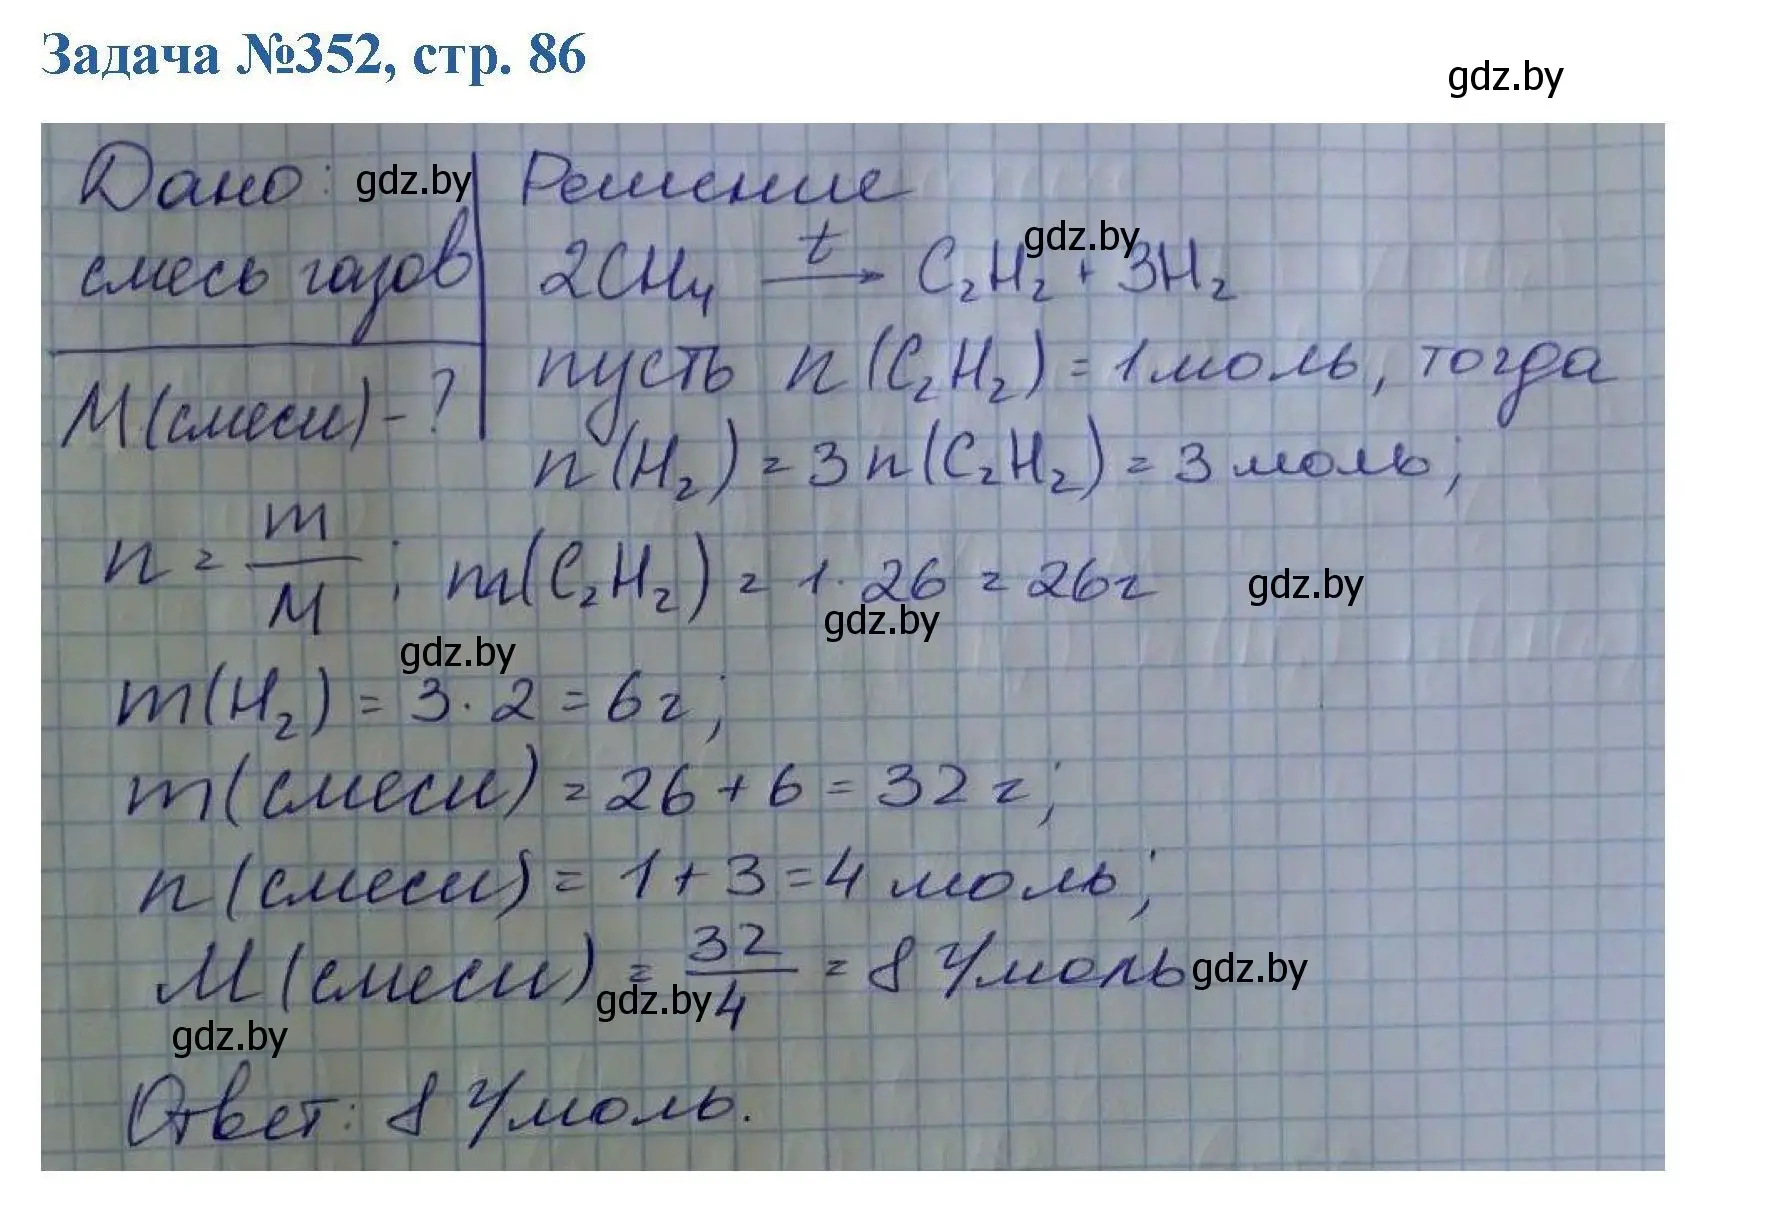 Задача №352, стр. 86
gdz.by
Дано: gdz.by Решение
смесь газов 2CH₄ —t→ C₂H₂ + 3H₂ gdz.by
M(смеси) - ? пусть n(C₂H₂) = 1 моль, тогда
n(H₂) = 3n(C₂H₂) = 3 моль;
n = m/M; m(C₂H₂) = 1 · 26 = 26 г gdz.by
gdz.by
gdz.by
m(H₂) = 3 · 2 = 6 г;
m(смеси) = 26 + 6 = 32 г;
n(смеси) = 1 + 3 = 4 моль;
M(смеси) = 32/4 = 8 г/моль gdz.by
gdz.by
gdz.by
Ответ: 8 г/моль.